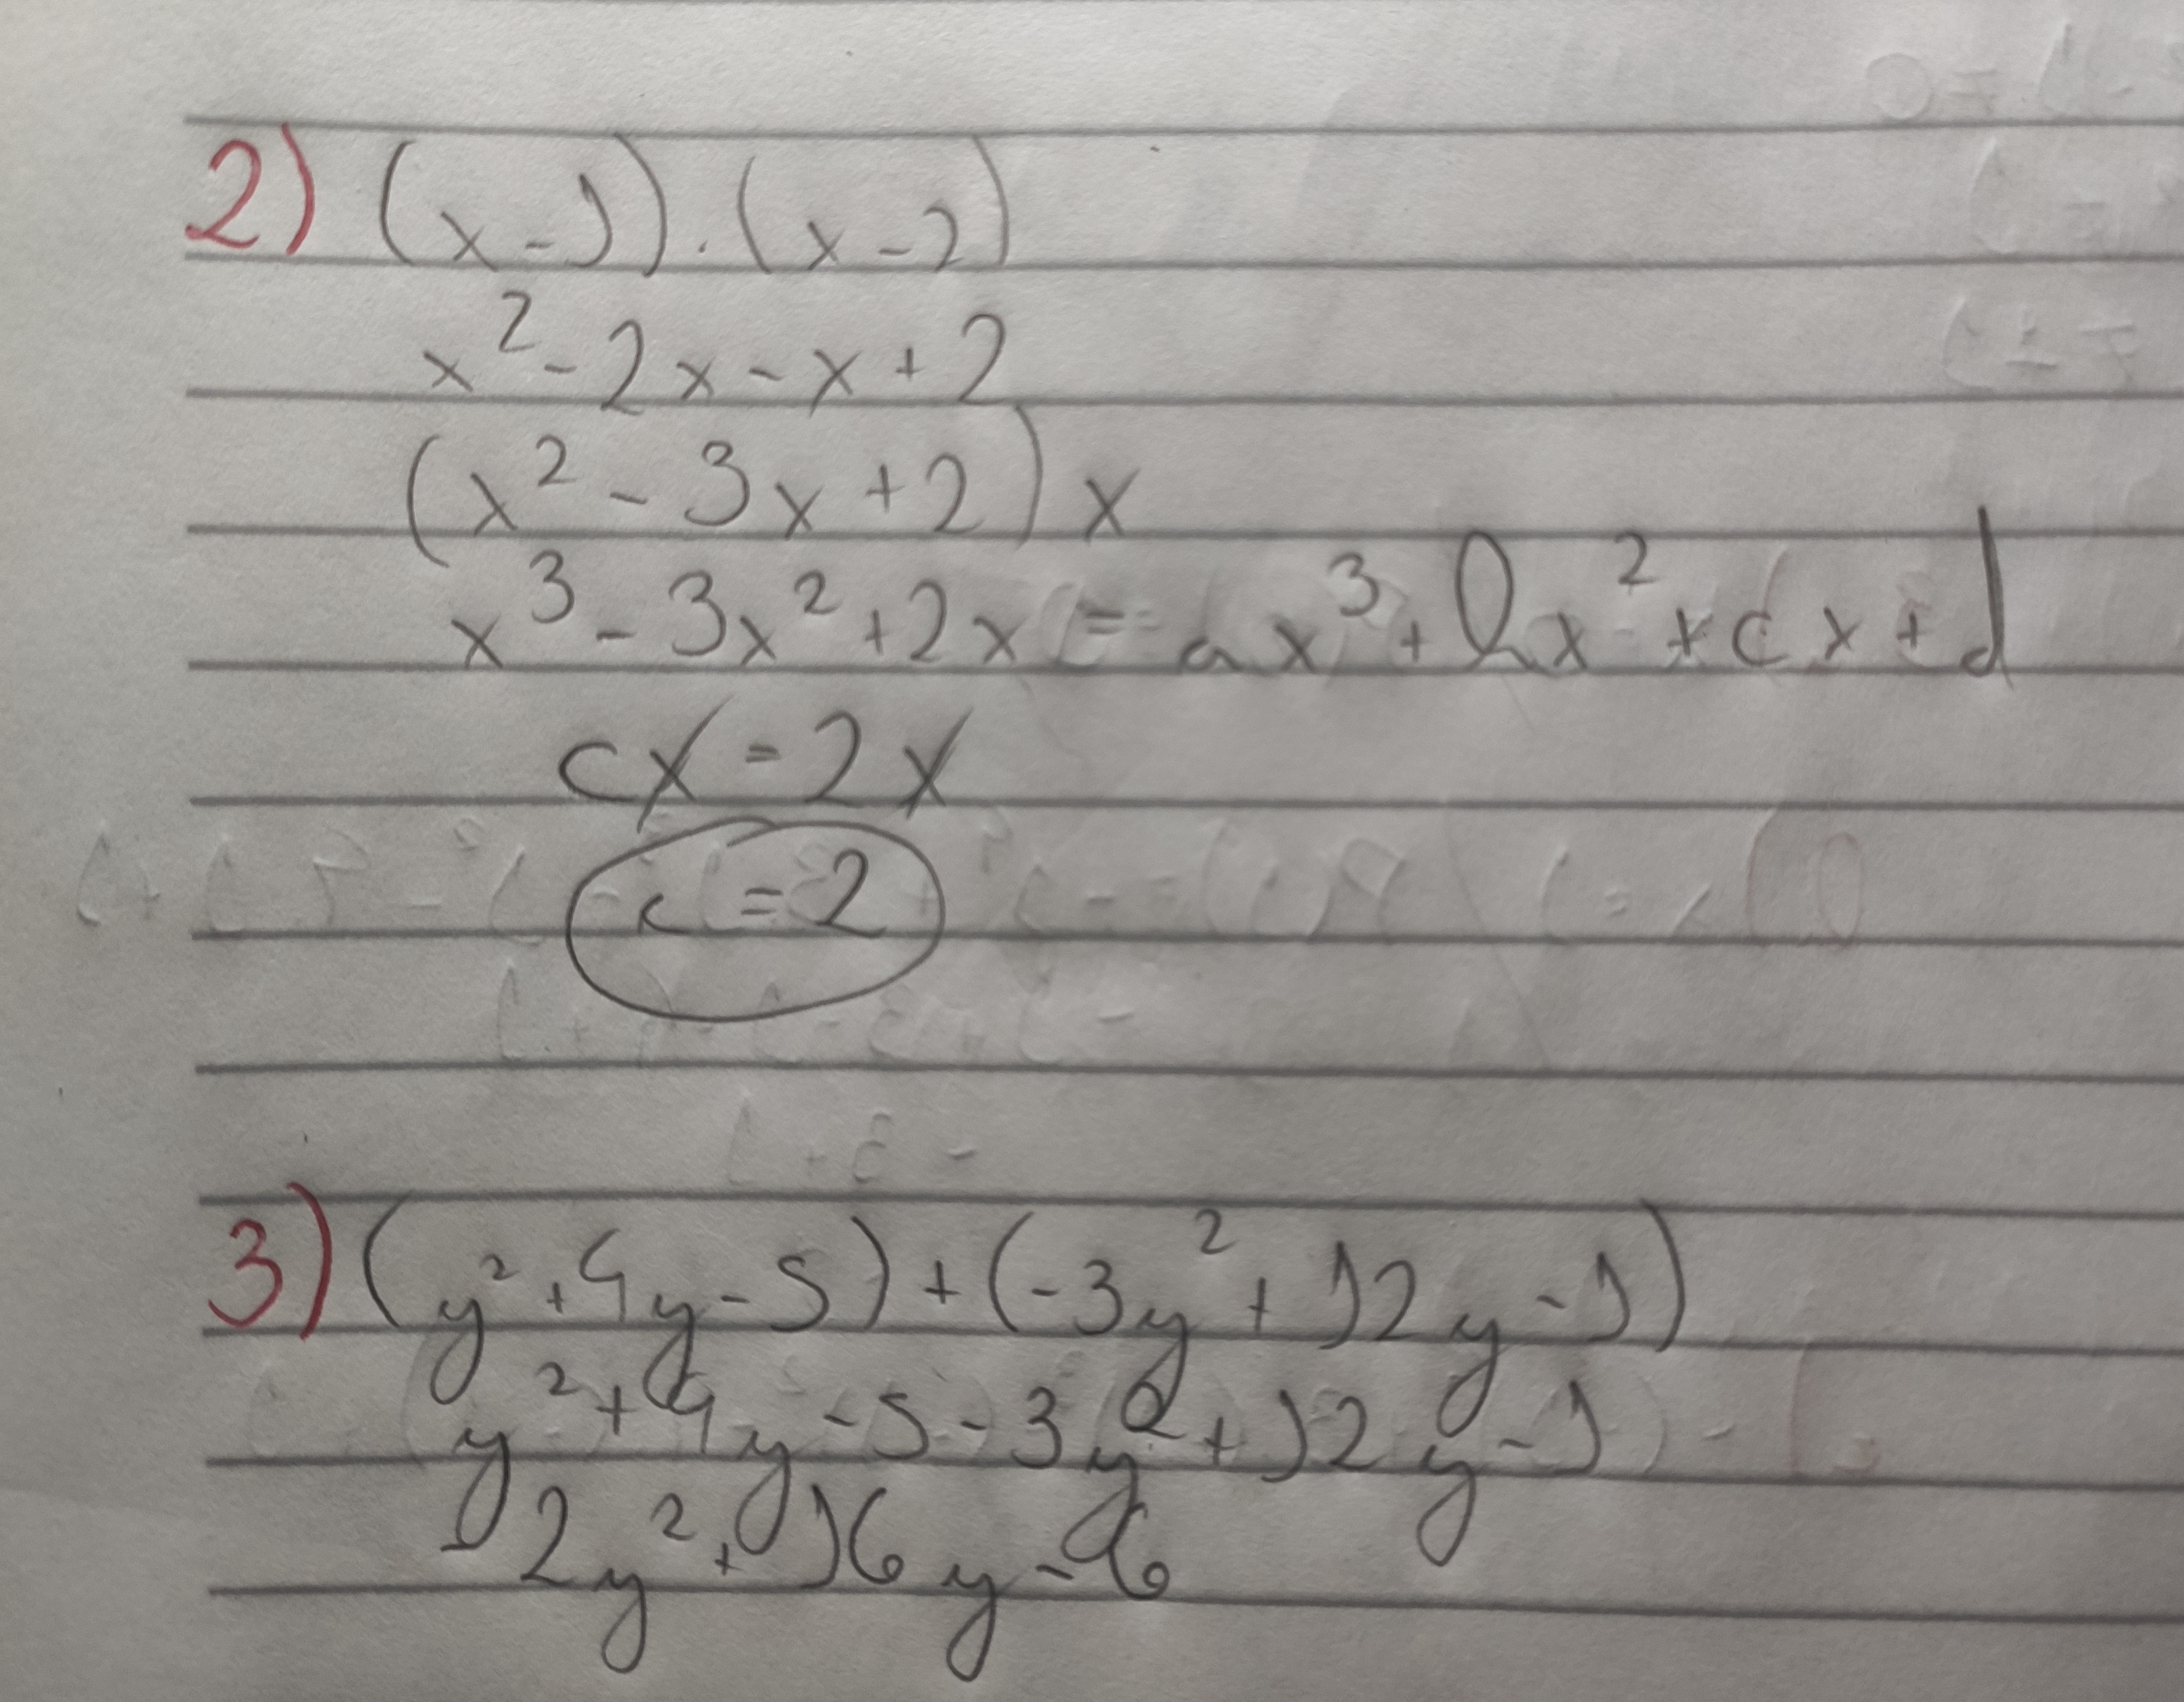 2) (x-1).(x-2)
x²-2x-x+2
(x²-3x+2)x
x³-3x²+2x=ax³+bx²+cx+d
cx=2x
c=2
3) (y²+4y-5)+(-3y²+12y-1)
y²+4y-5-3y²+12y-1
-2y²+16y-6